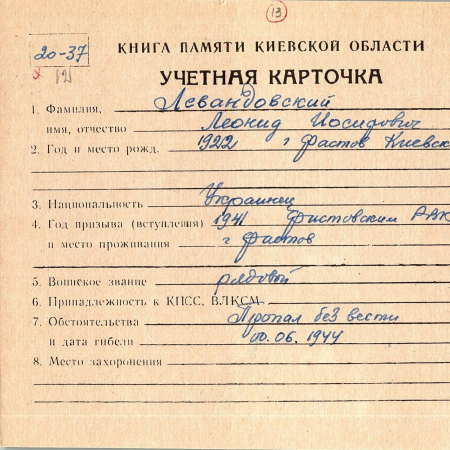 13
20-37
121
КНИГА ПАМЯТИ КИЕВСКОЙ ОБЛАСТИ
УЧЕТНАЯ КАРТОЧКА
1. Фамилия, Левандовский
имя, отчество Леонид Иосифович
2. Год и место рожд. 1922 г Фастов Киевск
3. Национальность Украинец
4. Год призыва (вступления) 1941 Фастовским РВК
и место проживания г Фастов
5. Воинское звание рядовой
6. Принадлежность к КПСС, ВЛКСМ
7. Обстоятельства Пропал без вести
и дата гибели 00.06.1944
8. Место захоронения